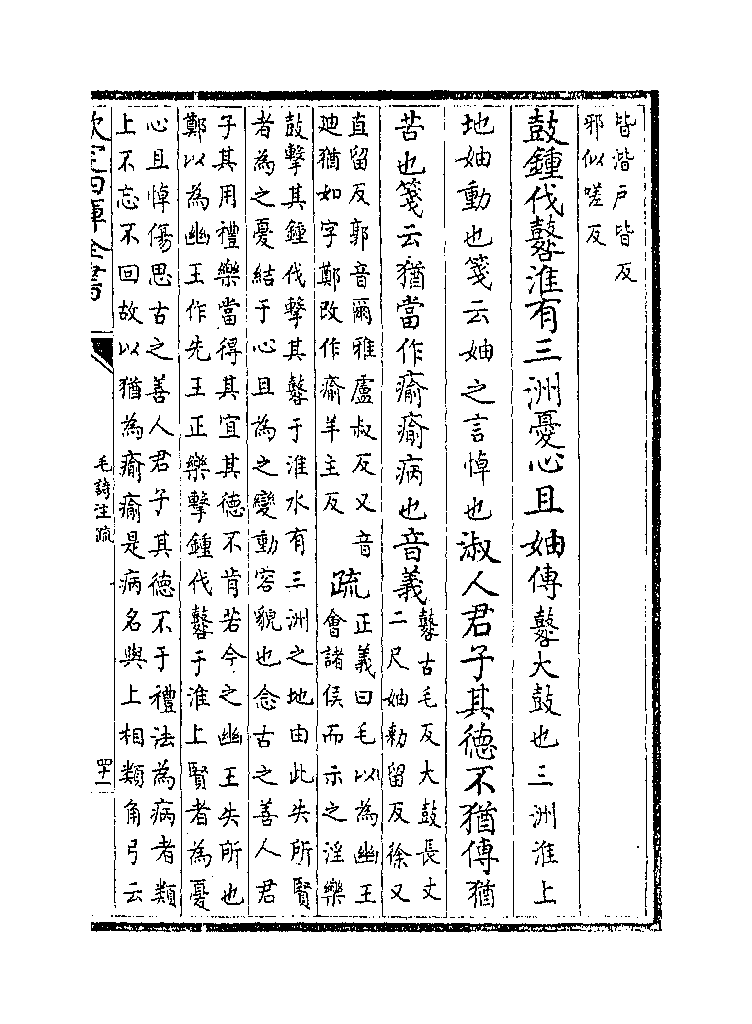 皆湝戸皆反
邪似嗟反
鼓鍾伐鼛淮有三洲憂心且妯傳鼛大鼓也三洲淮上
地妯動也箋云妯之言悼也淑人君子其德不猶傳猶
若也箋云猶當作瘉瘉病也音義
鼛古毛反大鼓長丈
二尺妯勑留反徐又
直留反郭音爾雅盧叔反又音
廸猶如字鄭改作瘉羊主反
疏
正義曰毛以為幽王
會諸侯而示之淫樂
鼓擊其鍾伐擊其鼛于淮水有三洲之地由此失所賢
者為之憂結于心且為之變動容貌也念古之善人君
子其用禮樂當得其宜其德不肯若今之幽王失所也
鄭以為幽王作先王正樂擊鍾伐鼛于淮上賢者為憂
心且悼傷思古之善人君子其德不于禮法為病者類
上不忘不回故以猶為瘉瘉是病名與上相類角弓云
欽定四庫全書
毛詩注疏
四十一